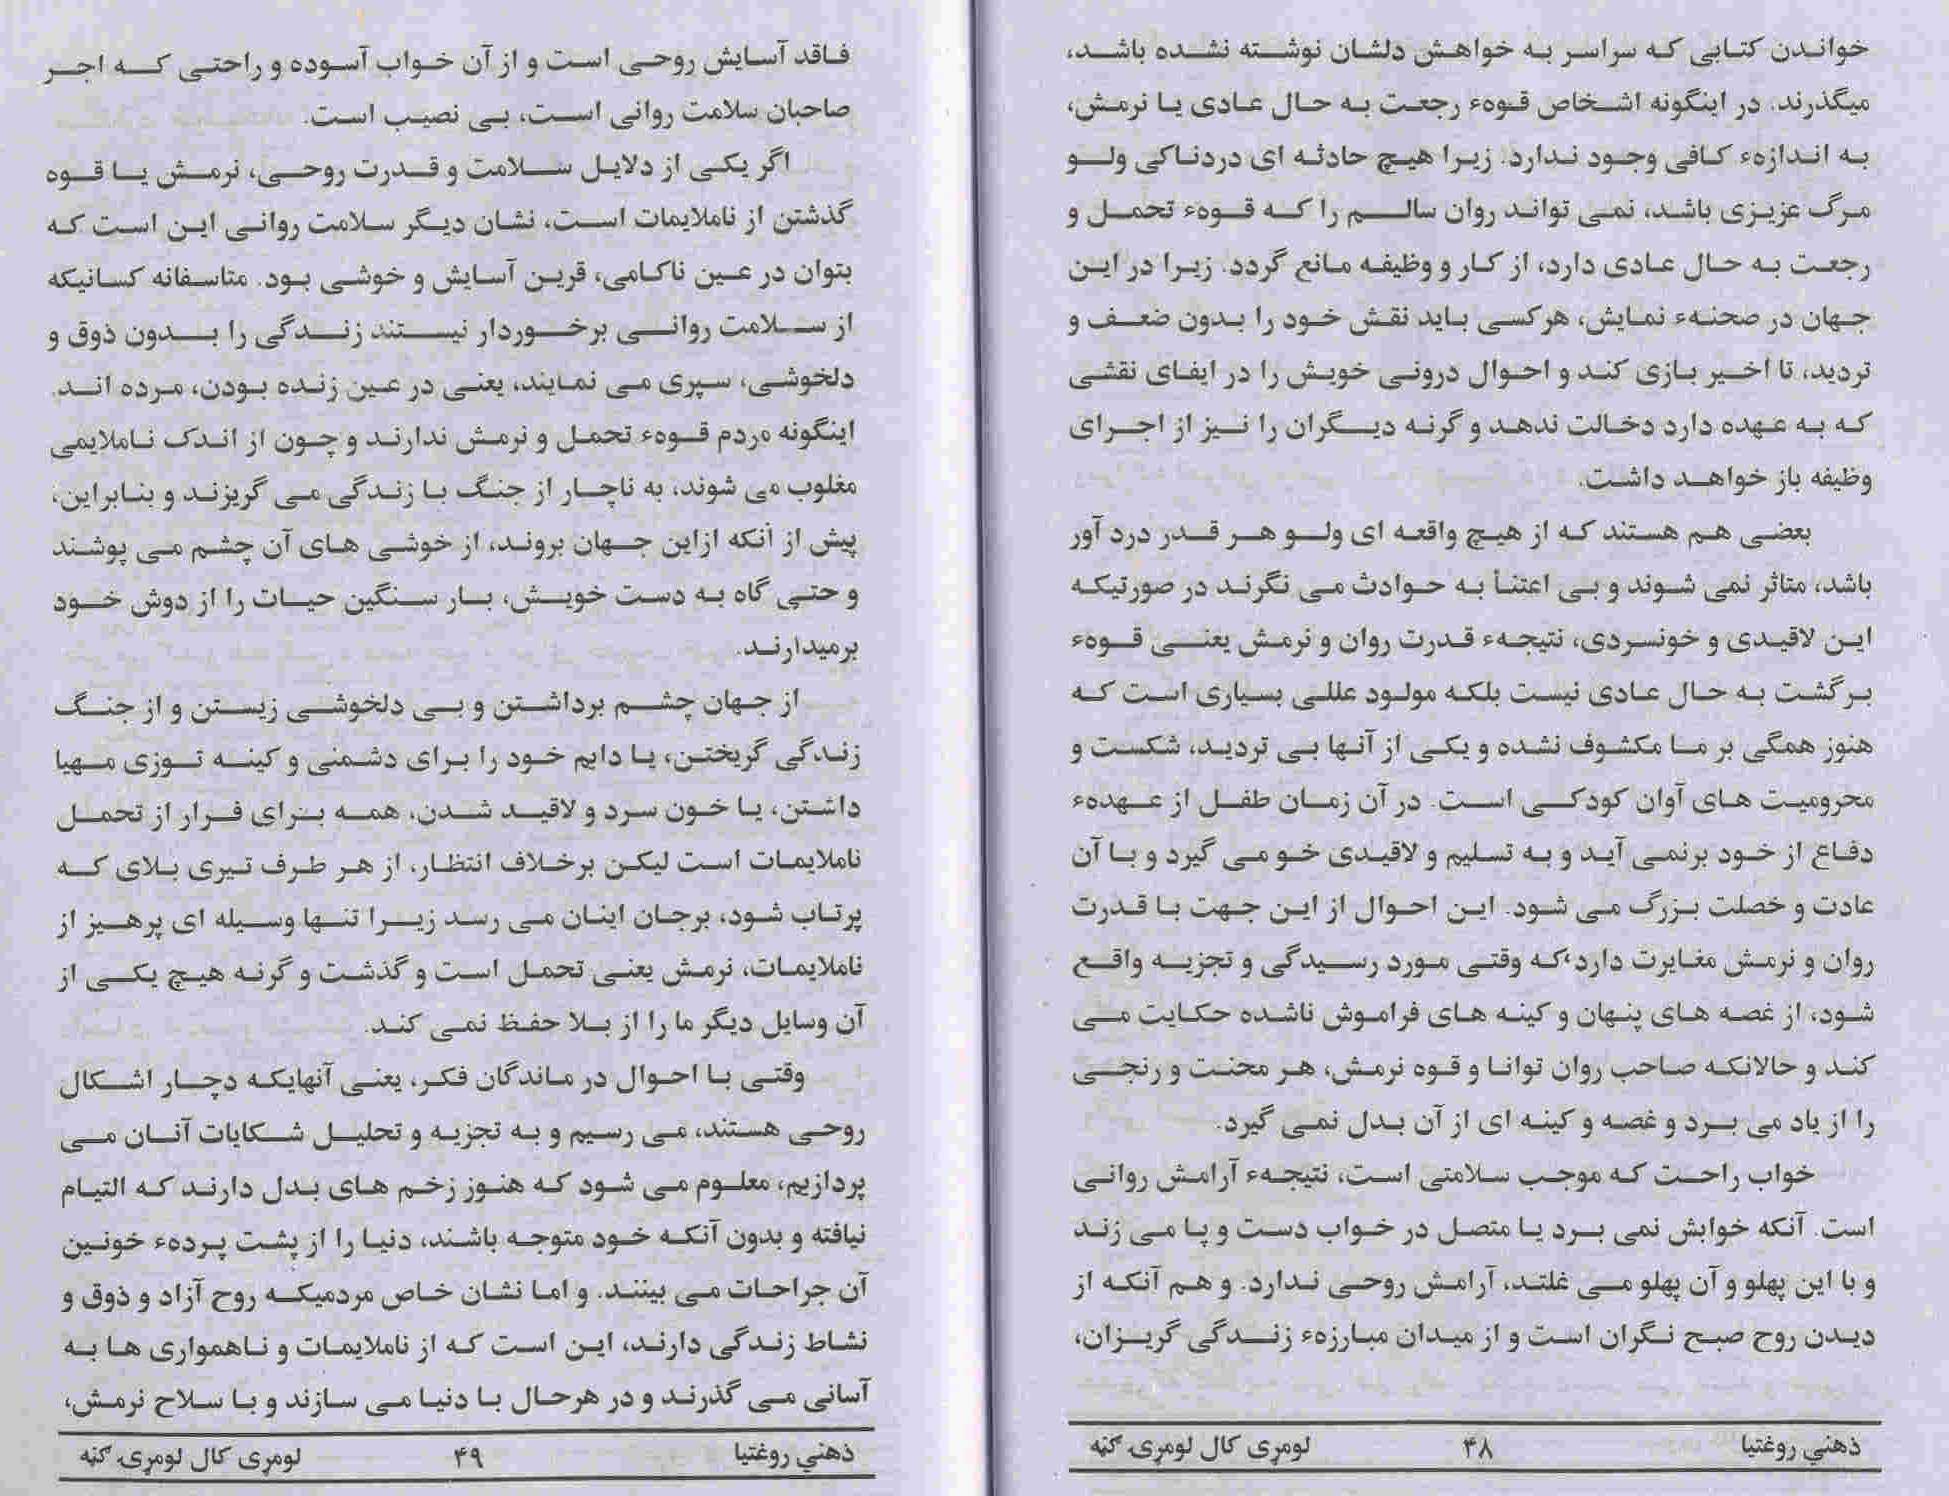 خواندن کتابی که سراسر به خواهش دلشان نوشته نشده باشد،
میگذرند. در اینگونه اشخاص قوهء رجعت به حال عادی یا نرمش،
به اندازهء کافی وجود ندارد. زیرا هیچ حادثه ای دردناکی ولو
مرگ عزیزی باشد، نمی تواند روان سالم را که قوهء تحمل و
رجعت به حال عادی دارد، از کار و وظیفه مانع گردد. زیرا در این
جهان در صحنهء نمایش، هرکسی باید نقش خود را بدون ضعف و
تردید، تا اخیر بازی کند و احوال درونی خویش را در ایفای نقشی
که به عهده دارد دخالت ندهد و گرنه دیگران را نیز از اجرای
وظیفه باز خواهد داشت.
بعضی هم هستند که از هیچ واقعه ای ولو هر قدر درد آور
باشد، متاثر نمی شوند و بی اعتنأ به حوادث می نگرند در صورتیکه
این لاقیدی و خونسردی، نتیجهء قدرت روان و نرمش یعنی قوهء
برگشت به حال عادی نیست بلکه مولود عللی بسیاری است که
هنوز همگی بر ما مکشوف نشده و یکی از آنها بی تردید، شکست و
محرومیت های آوان کودکی است. در آن زمان طفل از عهدهء
دفاع از خود برنمی آید و به تسلیم و لاقیدی خو می گیرد و با آن
عادت و خصلت بزرگ می شود. این احوال از این جهت با قدرت
روان و نرمش مغایرت دارد، که وقتی مورد رسیدگی و تجزیه واقع
شود، از غصه های پنهان و کینه های فراموش ناشده حکایت می
کند و حالانکه صاحب روان توانا و قوه نرمش، هر محنت و رنجی
را از یاد می برد و غصه و کینه ای از آن بدل نمی گیرد.
خواب راحت که موجب سلامتی است، نتیجهء آرامش روانی
است. آنکه خوابش نمی برد یا متصل در خواب دست و پا می زند
و با این پهلو و آن پهلو می غلتد، آرامش روحی ندارد. و هم آنکه از
دیدن روح صبح نگران است و از میدان مبارزهء زندگی گریزان،
ذهني روغتیا ۴۸ لومړی کال لومړۍ ګڼه
فاقد آسایش روحی است و از آن خواب آسوده و راحتی که اجر
صاحبان سلامت روانی است، بی نصیب است.
اگر یکی از دلایل سلامت و قدرت روحی، نرمش یا قوه
گذشتن از ناملایمات است، نشان دیگر سلامت روانی این است که
بتوان در عین ناکامی، قرین آسایش و خوشی بود. متاسفانه کسانیکه
از سلامت روانی برخوردار نیستند زندگی را بدون ذوق و
دلخوشی، سپری می نمایند، یعنی در عین زنده بودن، مرده اند.
اینگونه مردم قوهء تحمل و نرمش ندارند و چون از اندک ناملایمی
مغلوب می شوند، به ناچار از جنگ با زندگی می گریزند و بنابراین،
پیش از آنکه ازاین جهان بروند، از خوشی های آن چشم می پوشند
و حتی گاه به دست خویش، بار سنگین حیات را از دوش خود
برمیدارند.
از جهان چشم برداشتن و بی دلخوشی زیستن و از جنگ
زندگی گریختن، یا دایم خود را برای دشمنی و کینه توزی مهیا
داشتن، یا خون سرد و لاقید شدن، همه برای فرار از تحمل
ناملایمات است لیکن برخلاف انتظار، از هر طرف تیری بلای که
پرتاب شود، برجان اینان می رسد زیرا تنها وسیله ای پرهیز از
ناملایمات، نرمش یعنی تحمل است و گذشت و گرنه هیچ یکی از
آن وسایل دیگر ما را از بلا حفظ نمی کند.
وقتی با احوال در ماندگان فکر، یعنی آنهایکه دچار اشکال
روحی هستند، می رسیم و به تجزیه و تحلیل شکایات آنان می
پردازیم، معلوم می شود که هنوز زخم های بدل دارند که التیام
نیافته و بدون آنکه خود متوجه باشند، دنیا را از پشت پردهء خونین
آن جراحات می بینند. و اما نشان خاص مردمیکه روح آزاد و ذوق و
نشاط زندگی دارند، این است که از ناملایمات و ناهمواری ها به
آسانی می گذرند و در هرحال با دنیا می سازند و با سلاح نرمش،
ذهني روغتیا ۴۹ لومړی کال لومړۍ ګڼه